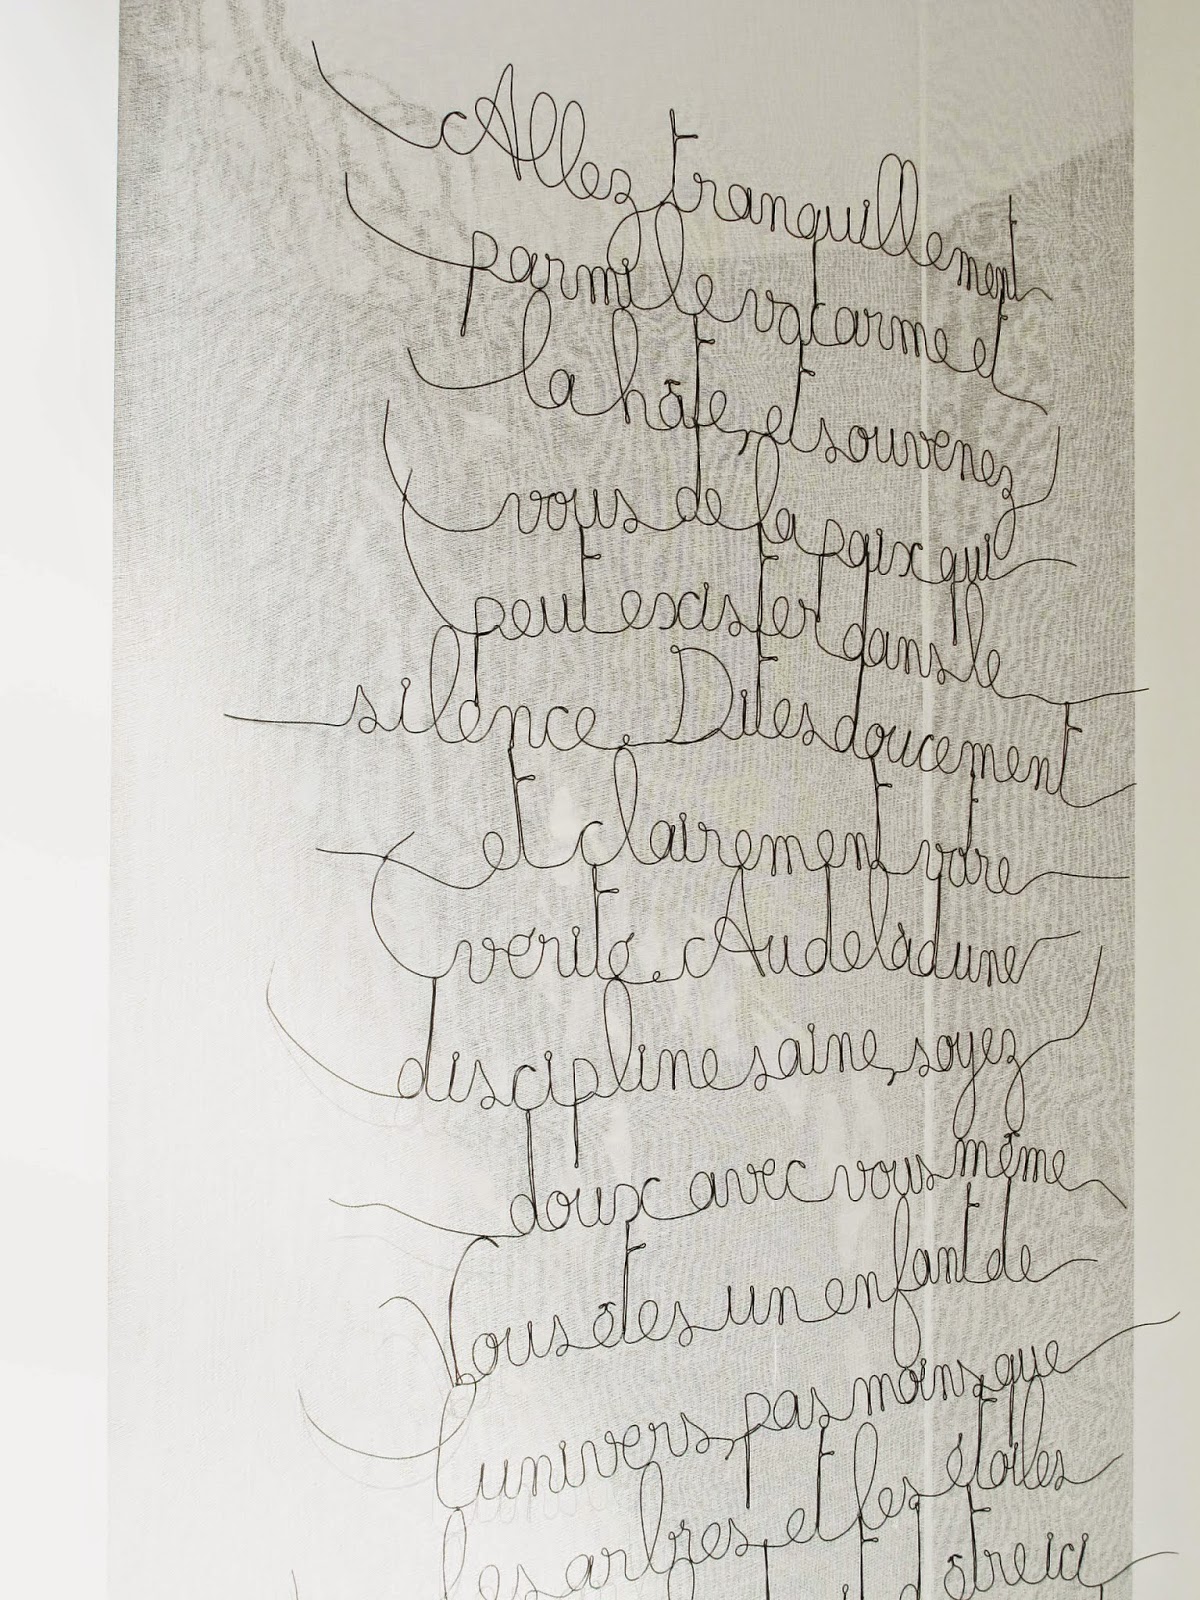 Allez tranquillement
parmi le vacarme et
la hâte, et souvenez
vous de la paix qui
peut exister dans le
silence. Dites doucement
et clairement votre
vérité. Au delà d une
discipline saine, soyez
doux avec vous même
Vous êtes un enfant de
l univers, pas moins que
les arbres et les étoiles
être ici